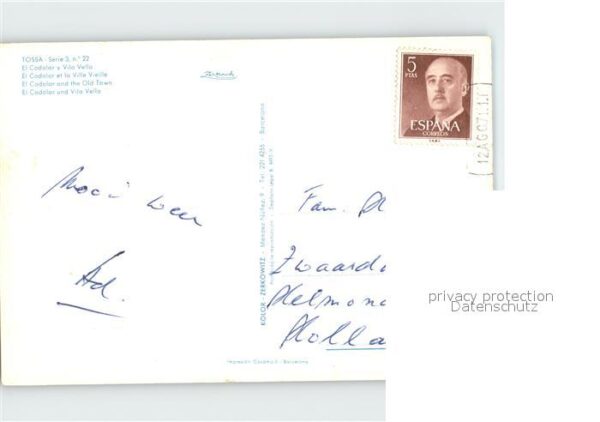 TOSSA - Serie 3, n.° 22
El Codolar y Vila Vella
El Codolar et la Ville Vieille
El Codolar and the Old Town
El Codolar und Vila Vella
5
PTAS
ESPAÑA
CORREOS
12 AGO 71
Mooi weer
Ad.
KOLOR ZERKOWITZ - Méndez Núñez, 9 - Tel. 221 4255 - Barcelona
Fam.
Zwaard
Helmon
Holla
Barcelona
privacy protection
Datenschutz